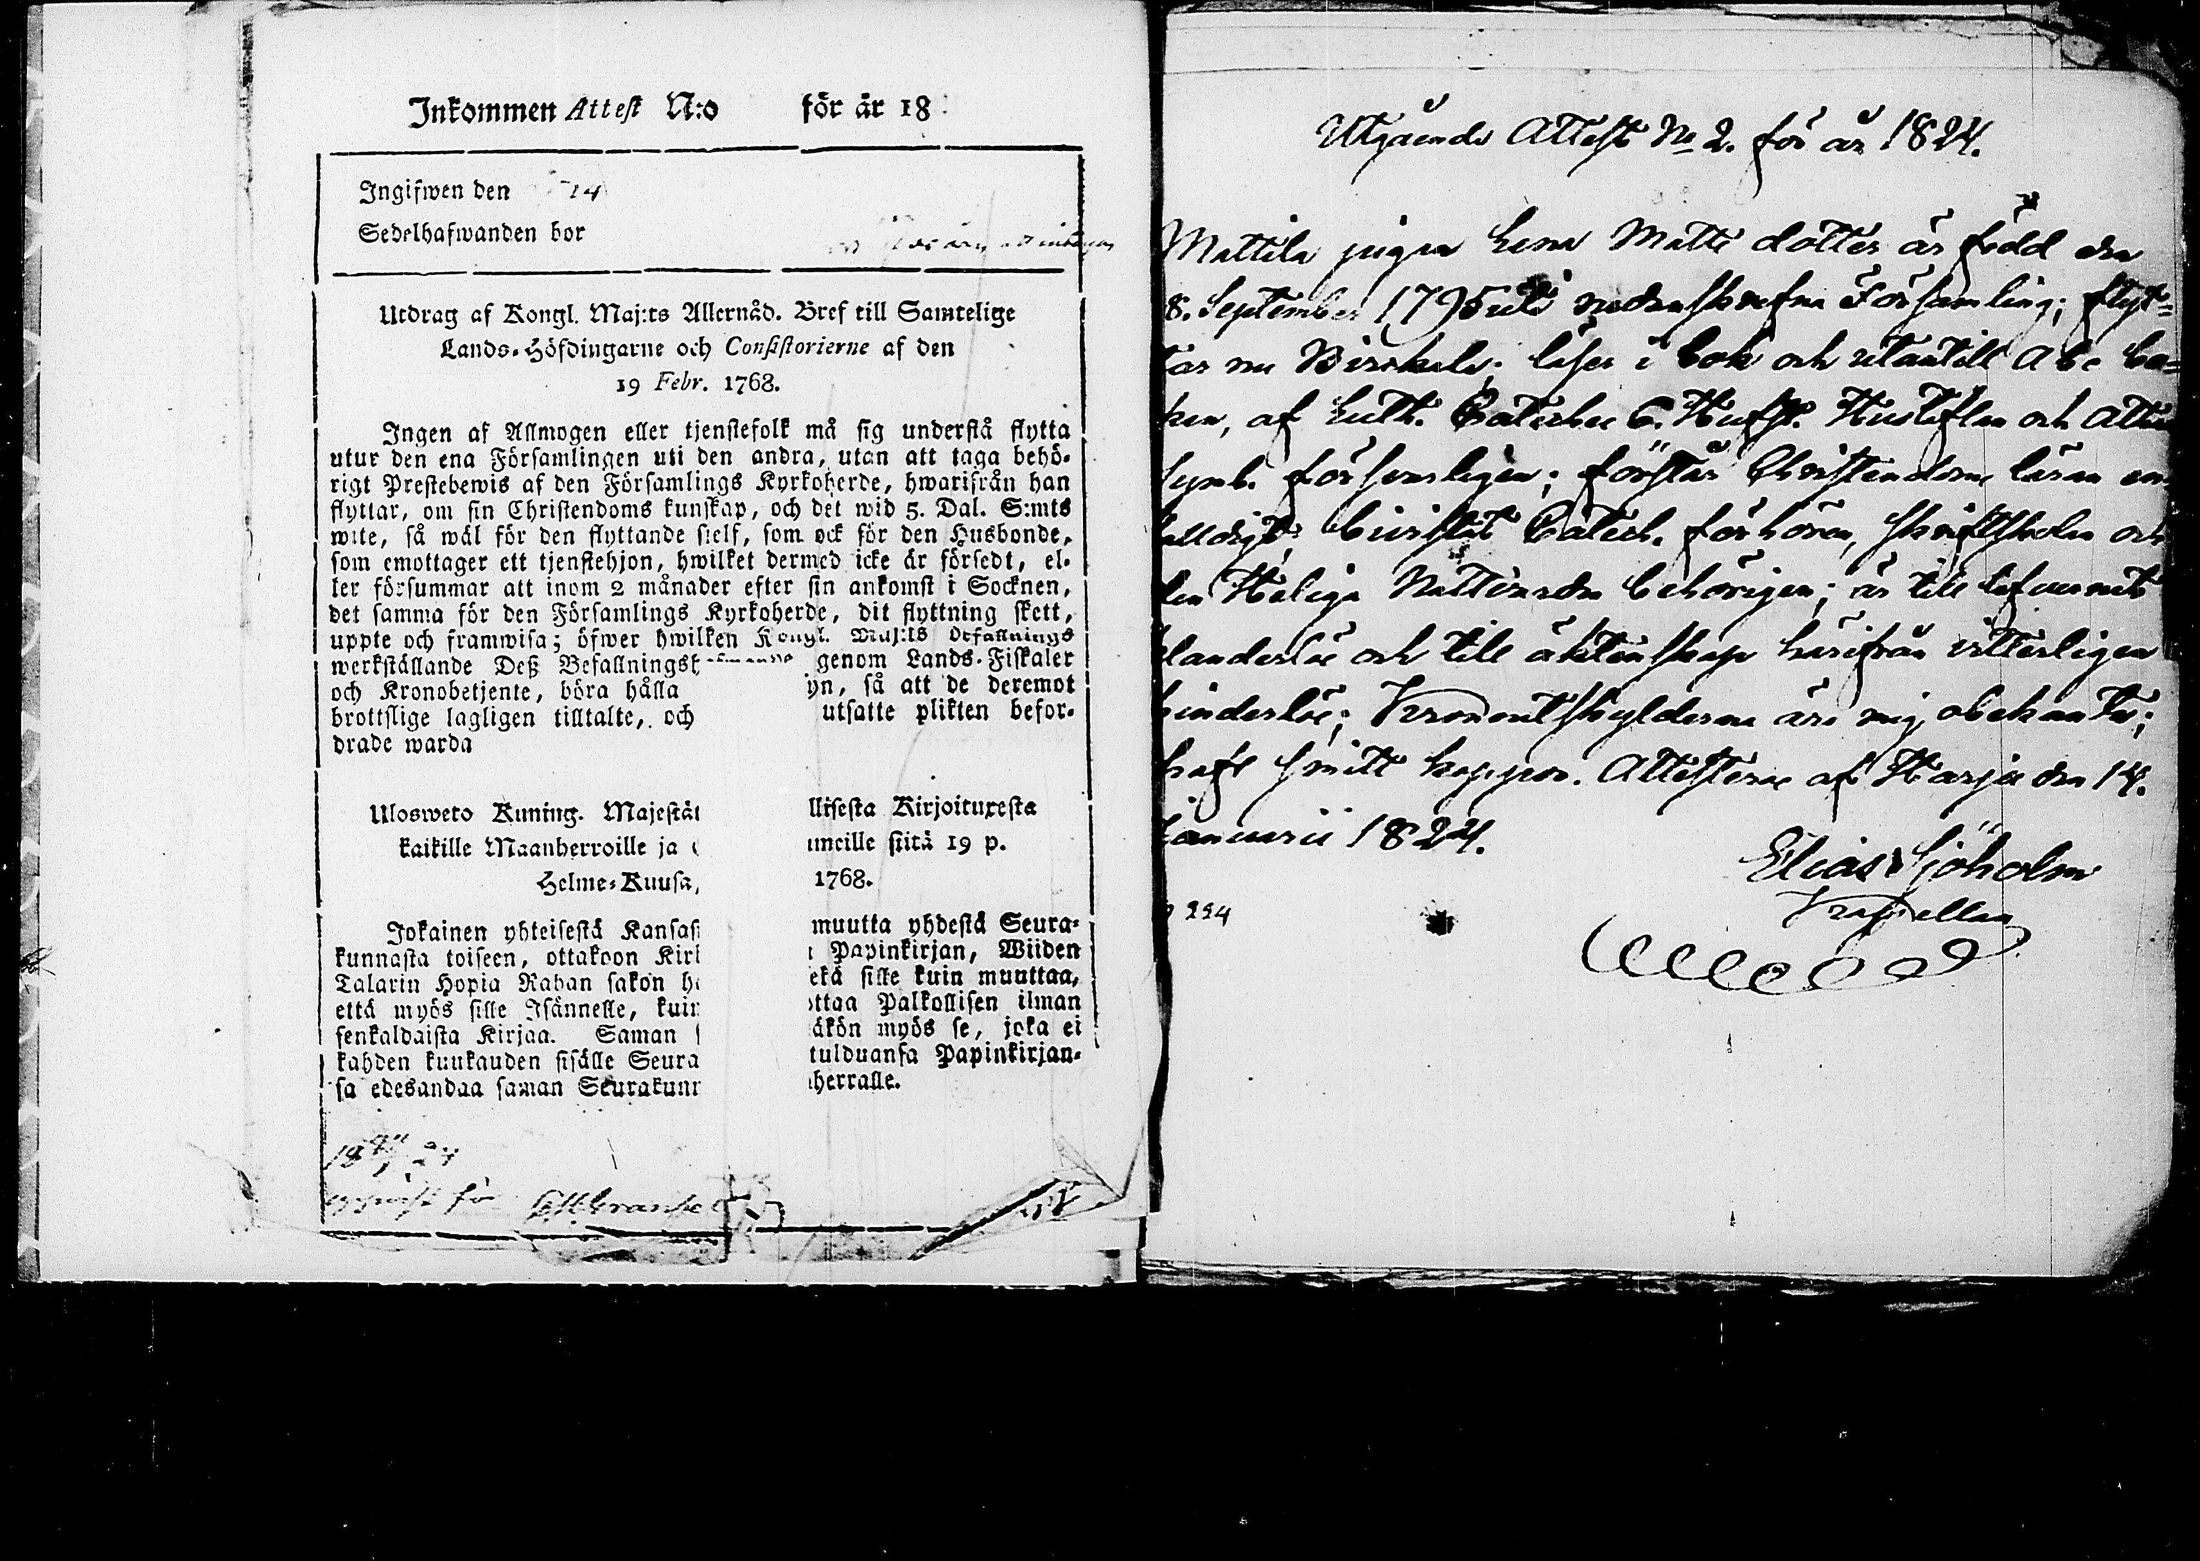 Inkommen Attest N:o för år 18
Ingifwen den 14
Sedelhafwanden bor
Utdrag af Kongl. Maj:ts Allernåd. Bref till Samtelige
Lands-Höfdingarne och Consistorierne af den
19 Febr. 1768.
Ingen af Allmogen eller tjenstefolk må sig understå flytta
utur den ena Församlingen uti den andra, utan att taga behö-
rigt Prestebewis af den Församlings Kyrkoherde, hwarifrån han
flyttar, om sin Christendoms kunskap, och det wid 5. Dal. S:mts
wite, så wäl för den flyttande sielf, som ock för den Husbonde,
som emottager ett tjenstehjon, hwilket dermed icke är försedt, el-
ler försummar att inom 2 månader efter sin ankomst i Socknen,
det samma för den Församlings Kyrkoherde, dit flyttning skett,
uppte och framwisa; öfwer hwilken Kongl. Maj:ts Befallnings
werkställande Deß Befallningsh genom Lands-Fiskaler
och Kronobetjente, böra hålla yn, så att de deremot
brottslige lagligen tilltalte, och utsatte plikten befor-
drade warda
Ulosweto Kuning. Majestät llisesta Kirjoituxesta
kaikille Maanherroille ja unneille siitä 19 p.
Helme-Kuusa, 1768.
Jokainen yhteisestä Kansas muutta yhdestä Seura-
kunnasta toiseen, ottakoon Kirk Papinkirjan, Wiiden
Talarin Hopia Rahan sakon h ekä sille kuin muuttaa,
että myös sille Isännelle, kuin ottaa Palkollisen ilman
senkaldaista Kirjaa. Saman s äkön myös se, joka ei
kahden kuukauden sisälle Seura tulduansa Papinkirjan-
sa edesandaa saman Seurakunn herralle.
Utgående Attest No 2. för år 1824.
Mattila pigan Lena Matts dotter är född den
8. September 1795 uti nedanskrefne Församling; flyt-
tar nu Birckala; läser i bok och utantill Abc bo-
ken, af Luth. Cateches C. Hufst. Hustaflan och Atha
symb. försvarligen; förstår Christendoms läran en-
faldigt; bivistat Catech. förhören, skriftskolan och
den Heliga Nattvarden behörigen; är till lefvernet
klanderlös och till äktenskap härifrån vitterligen
hinderlös; Kronoutskylderna äro mig obekante;
haft smitt koppor. Attesteras af Harju den 14.
Januarii 1824.
Elias Sjöholm
Kapellan